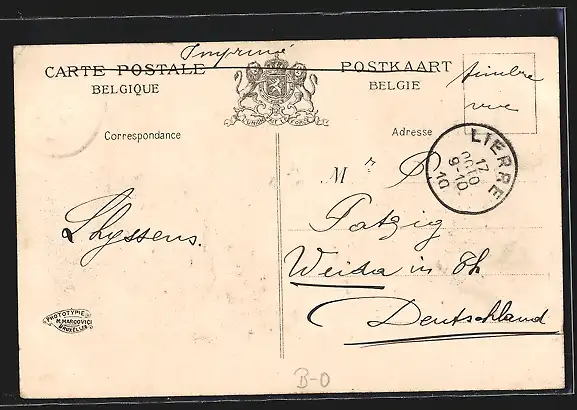 Imprimé
CARTE POSTALE
BELGIQUE
L'UNION FAIT LA FORCE
POSTKAART
BELGIE
timbre
vue
Correspondance
Adresse
LIERRE
17
OCTO
9-10
10
Mr P.
Fatzig
Weida in Th.
Deutschland
Lhyssens.
PHOTOTYPIE
M. MARCOVICI
BRUXELLES
B-O